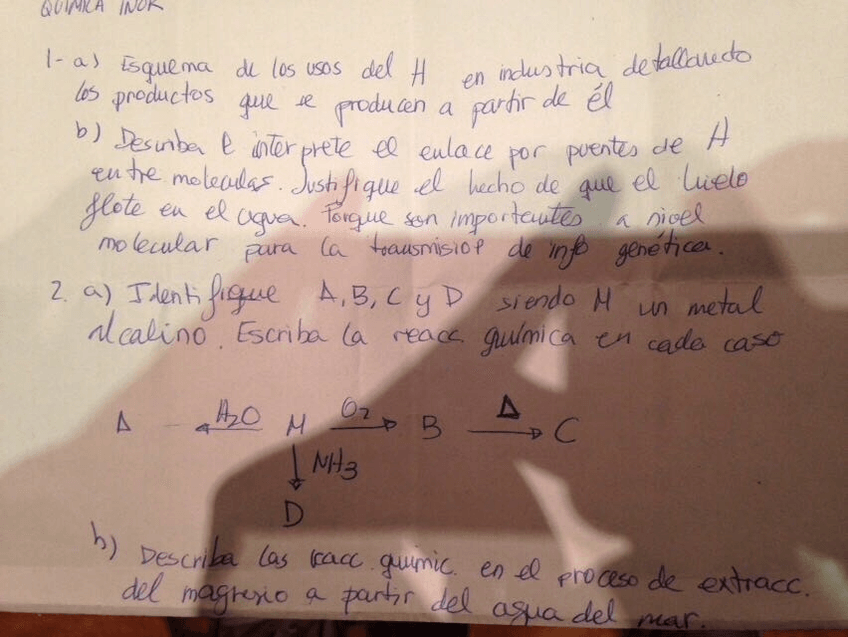 QUIMICA INOR
1- a) Esquema de los usos del H en industria detallando
los productos que se producen a partir de él
b) Describa e interprete el enlace por puentes de H
entre moleculas. Justifique el hecho de que el hielo
flote en el agua. Porque son importantes a nivel
molecular para la transmision de info genética.
2. a) Identifique A, B, C y D siendo M un metal
Alcalino. Escriba la reacc química en cada caso
A H2O M O2 B Δ C
NH3
D
b) Describa las reacc. quimic. en el proceso de extracc.
del magnesio a partir del agua del mar.